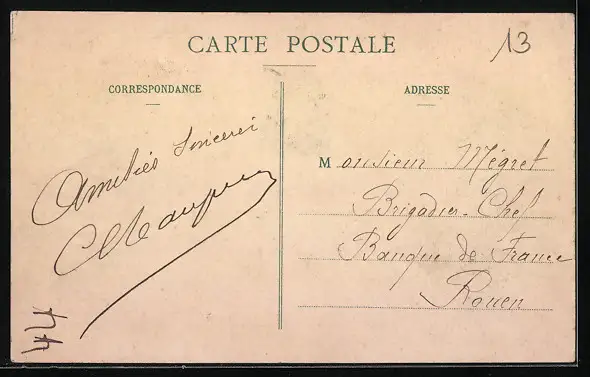 CARTE POSTALE
13
CORRESPONDANCE
Amitiés sincères
44
ADRESSE
Monsieur Mégret
Brigadier-Chef
Banque de France
Rouen